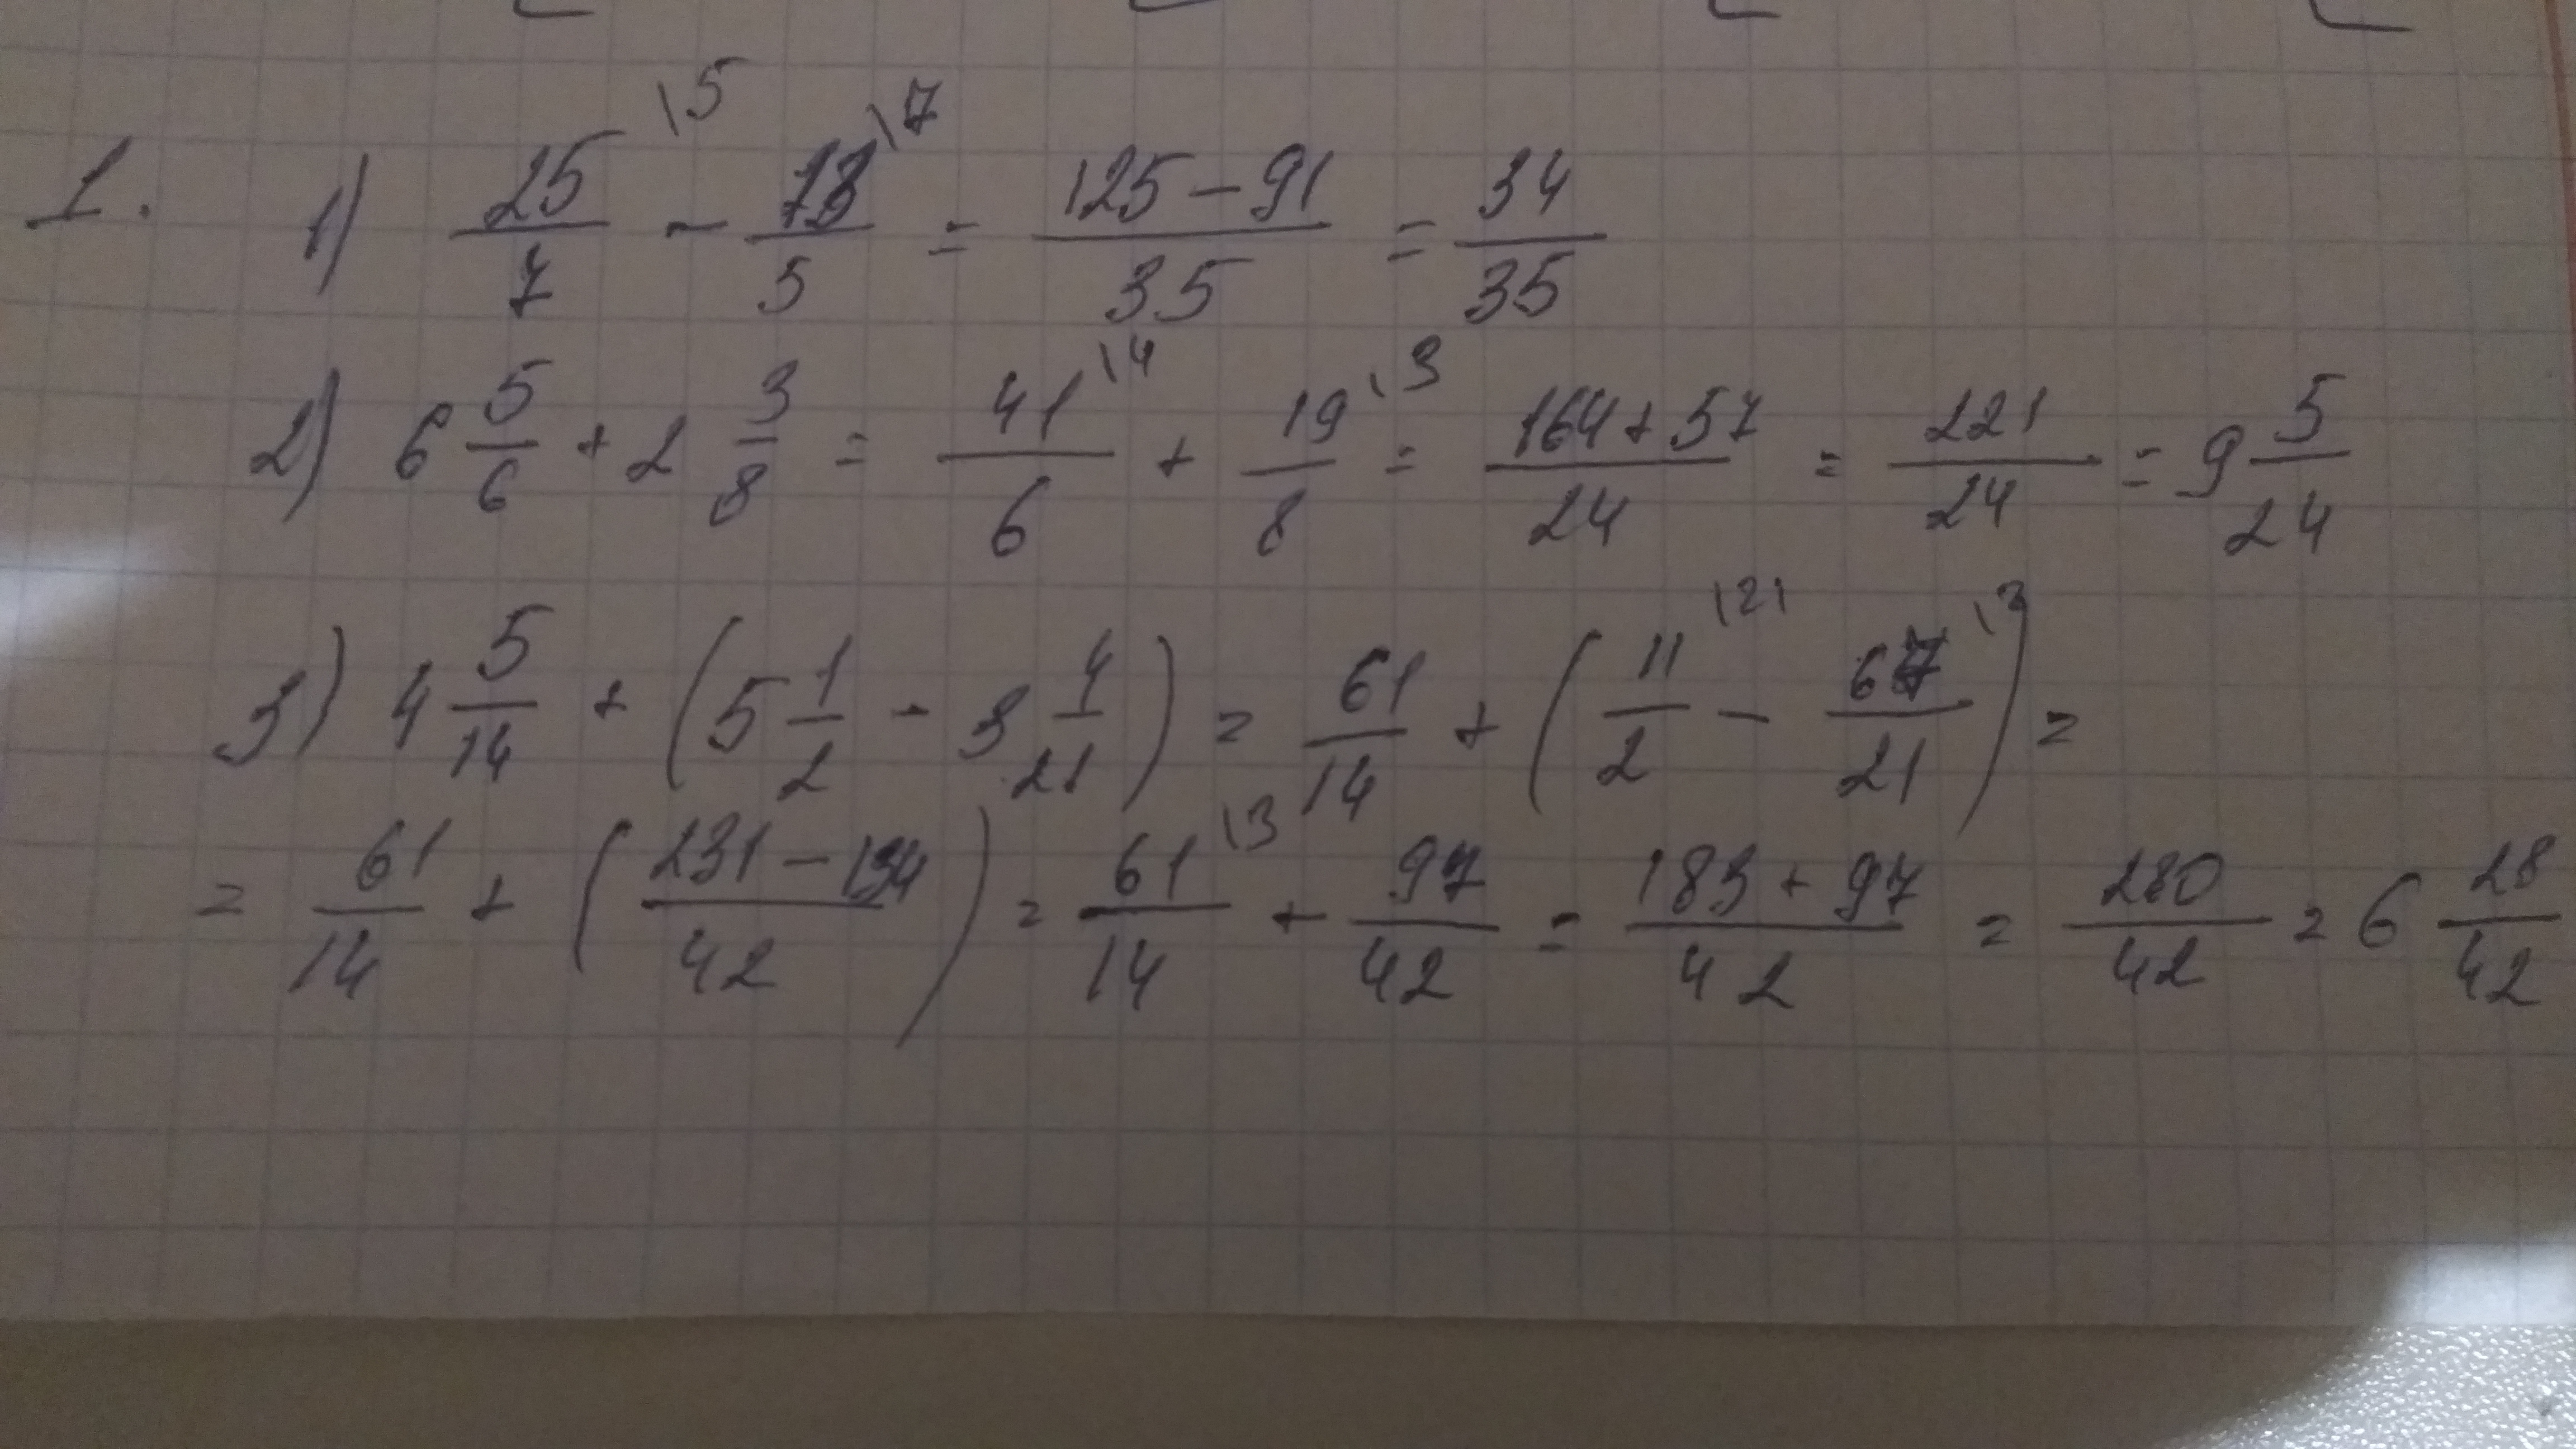 1. 1) 25/7 \5 - 13/5 \7 = (125-91)/35 = 34/35
2) 6 5/6 + 2 3/8 = 41/6 \4 + 19/8 \3 = (164+57)/24 = 221/24 = 9 5/24
3) 4 5/14 + (5 1/2 - 3 4/21) = 61/14 + (11/2 \21 - 67/21 \2) =
= 61/14 + ((231-134)/42) = 61/14 \3 + 97/42 = (183+97)/42 = 280/42 = 6 28/42